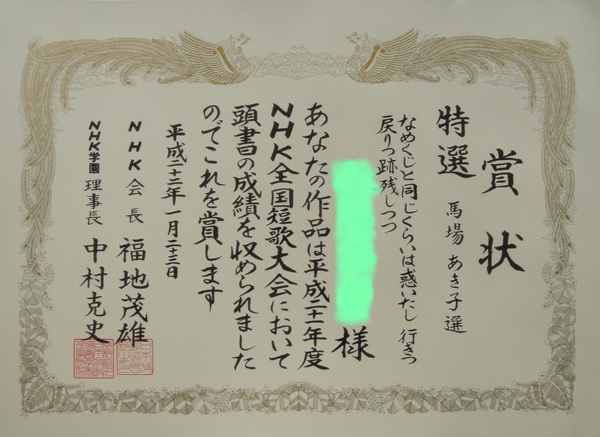 賞状
特選 馬場 あき子 選
なめくじと同じくらいは惑いたし 行きつ
戻りつ跡残しつつ
様
あなたの作品は平成二十一年度
NHK全国短歌大会において
頭書の成績を収められました
のでこれを賞します
平成二十二年一月二十三日
NHK会長 福地茂雄
NHK学園 理事長 中村克史